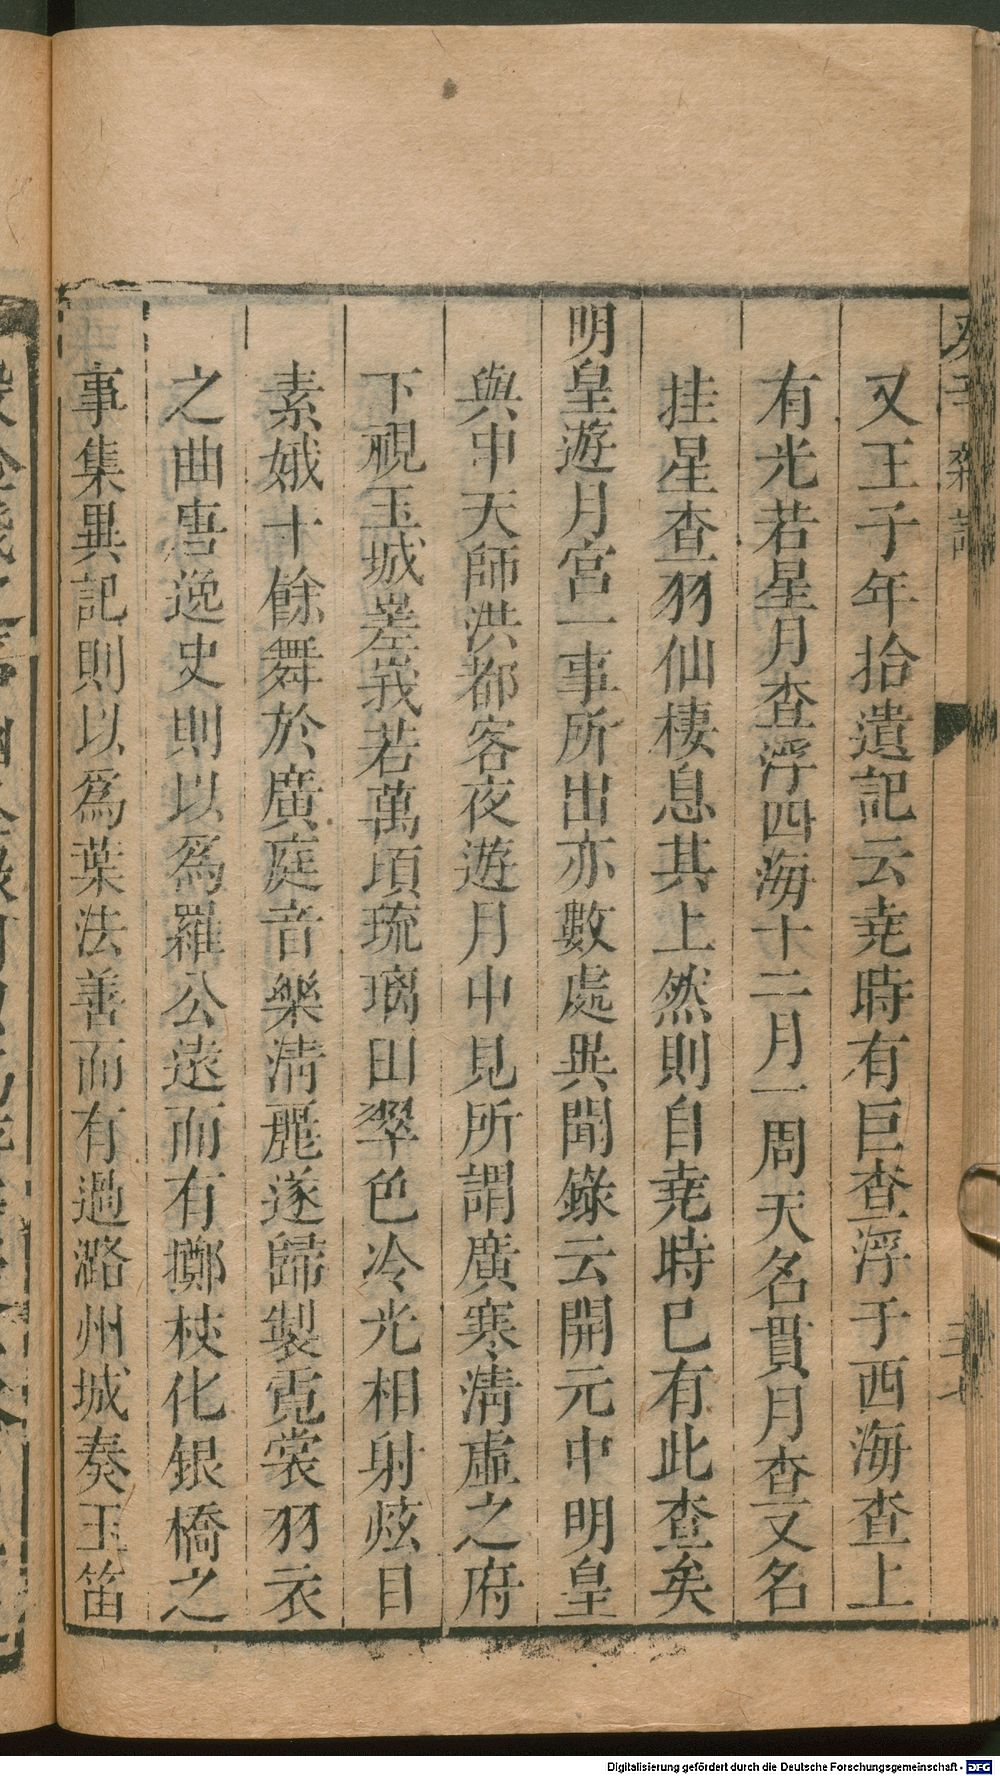 又王子年拾遺記云堯時有巨查浮于西海查上
有光若星月查浮四海十二月一周天名貫月查又名
挂星查羽仙棲息其上然則自堯時已有此查矣
明皇遊月宮一事所出亦數處異聞錄云開元中明皇
與申天師洪都客夜遊月中見所謂廣寒清虛之府
下視玉城嵳峩若萬頃琉璃田翠色冷光相射炫目
素娥十餘舞於廣庭音樂清麗遂歸製霓裳羽衣
之曲唐逸史則以爲羅公遠而有擲杖化银橋之
事集異記則以爲葉法善而有過潞州城奏玉笛
Digitalisierung gefördert durch die Deutsche Forschungsgemeinschaft - DFG